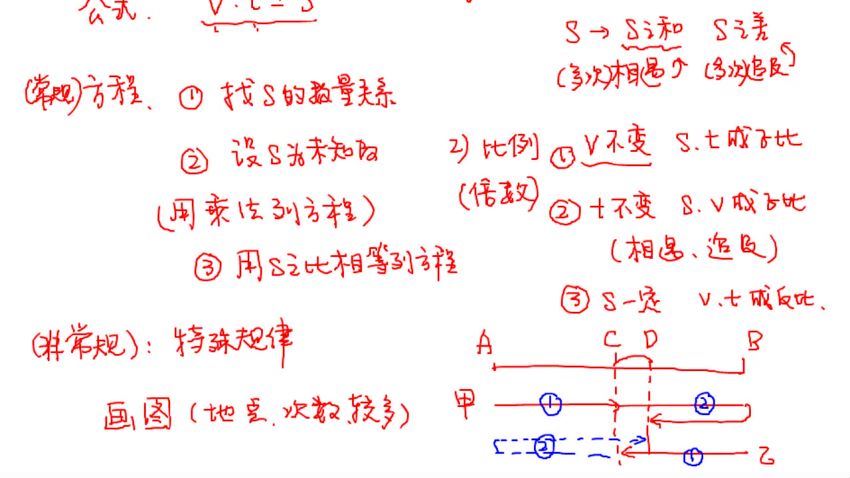 公式. V·t=S
(常规)方程. ① 找S的数量关系
② 设S为未知数
(用乘法列方程)
③ 用S之比相等列方程
(非常规): 特殊规律
画图 (地点.次数较多)
S → S之和 S之差
(多次)相遇 (多次)追及
2) 比例 ① V不变 S.t成正比
(倍数) ② t不变 S.V成正比
(相遇、追及)
③ S一定 V.t成反比.
A C D B
甲 ① ②
② ① 乙